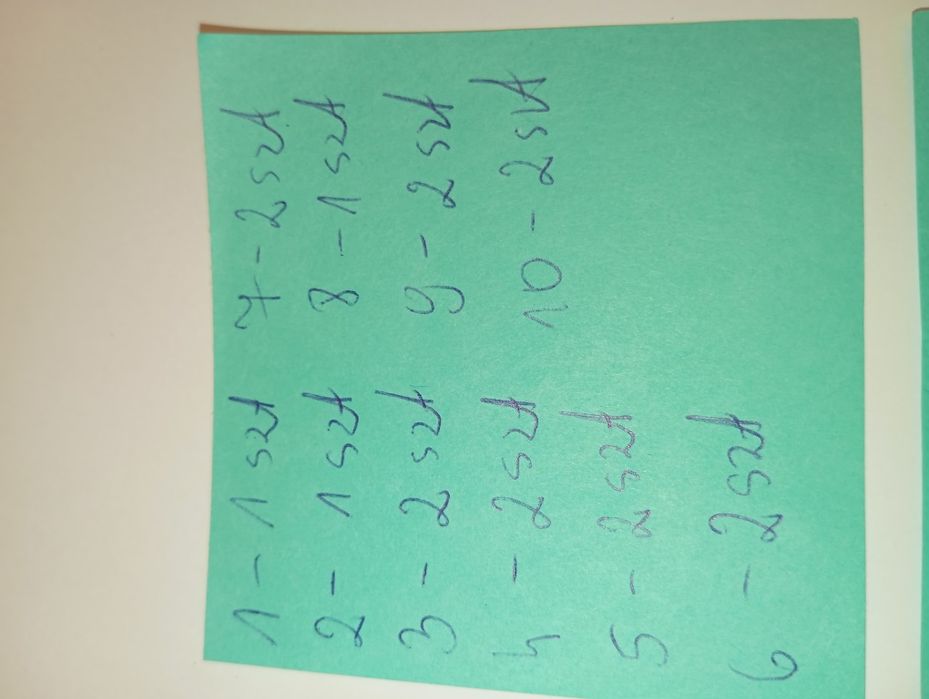 1 - 1 szt
2 - 1 szt
3 - 2 szt
4 - 2 szt
5 - 2 szt
6 - 2 szt
7 - 2 szt
8 - 1 szt
9 - 2 szt
10 - 2 szt